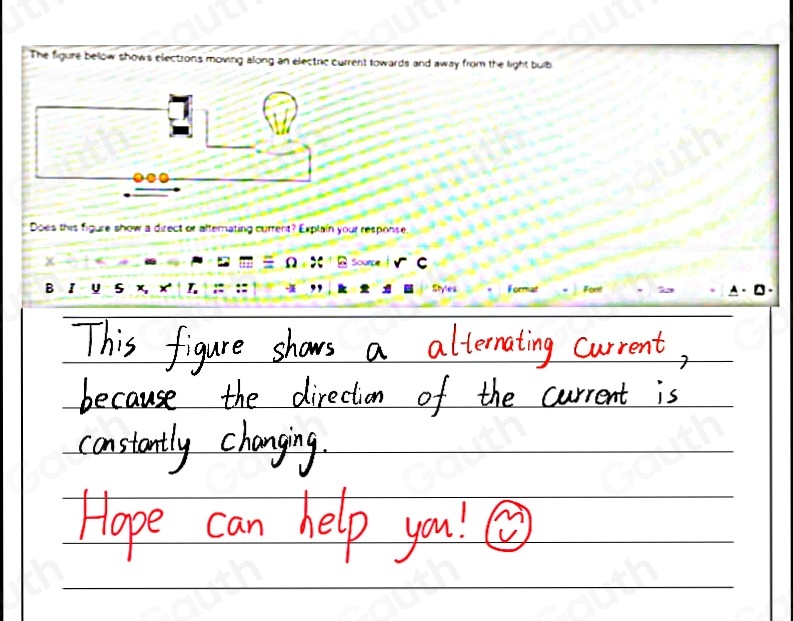 The figure below shows electrons moving along an electric current towards and away from the light bulb.
Does this figure show a direct or alternating current? Explain your response.
Source
B I U S x₂ x² Tₓ
Styles Format Font Size A
This figure shows a alternating current,
because the direction of the current is
constantly changing.
Hope can help you!
Gauth